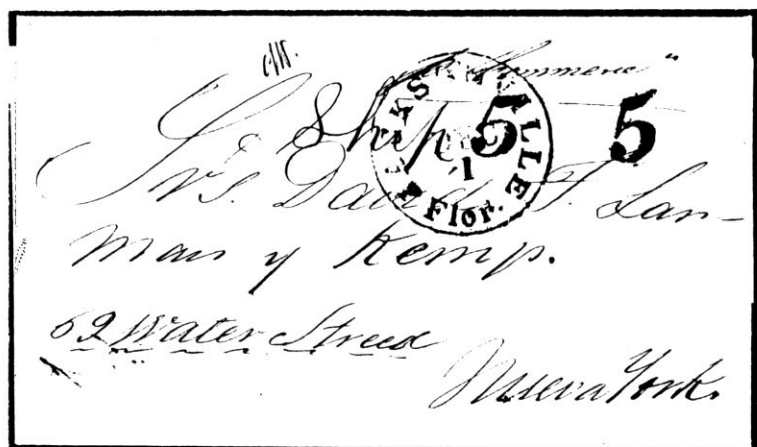 "Commerce"
Ship 5 5
JACKSONVILLE
1
Flor.
Srs. David T. Lan-
man y Kemp.
69 Water Streed
Nueva York.